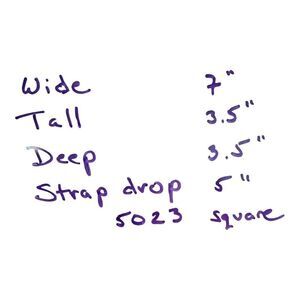 Wide 7"
Tall 3.5"
Deep 3.5"
Strap drop 5"
5023 square